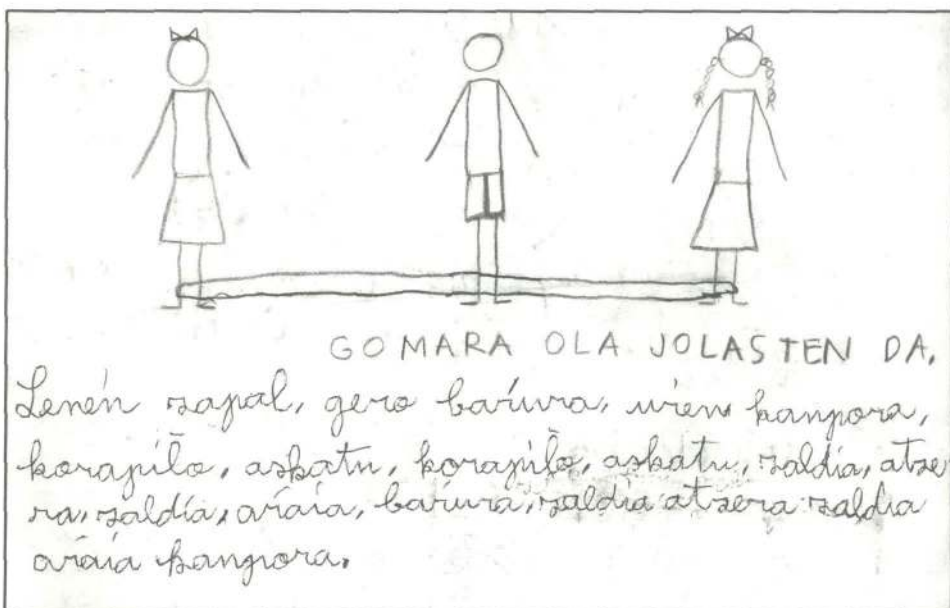 GOMARA OLA JOLASTEN DA.
Lenén zapal, gero baŕura, uŕen kanpora,
korapil̄o, askatu, korapil̄o, askatu, zaldia, atze
ra, zaldía, aŕaia, baŕura, zaldia atzera zaldia
aŕaia kanpora.